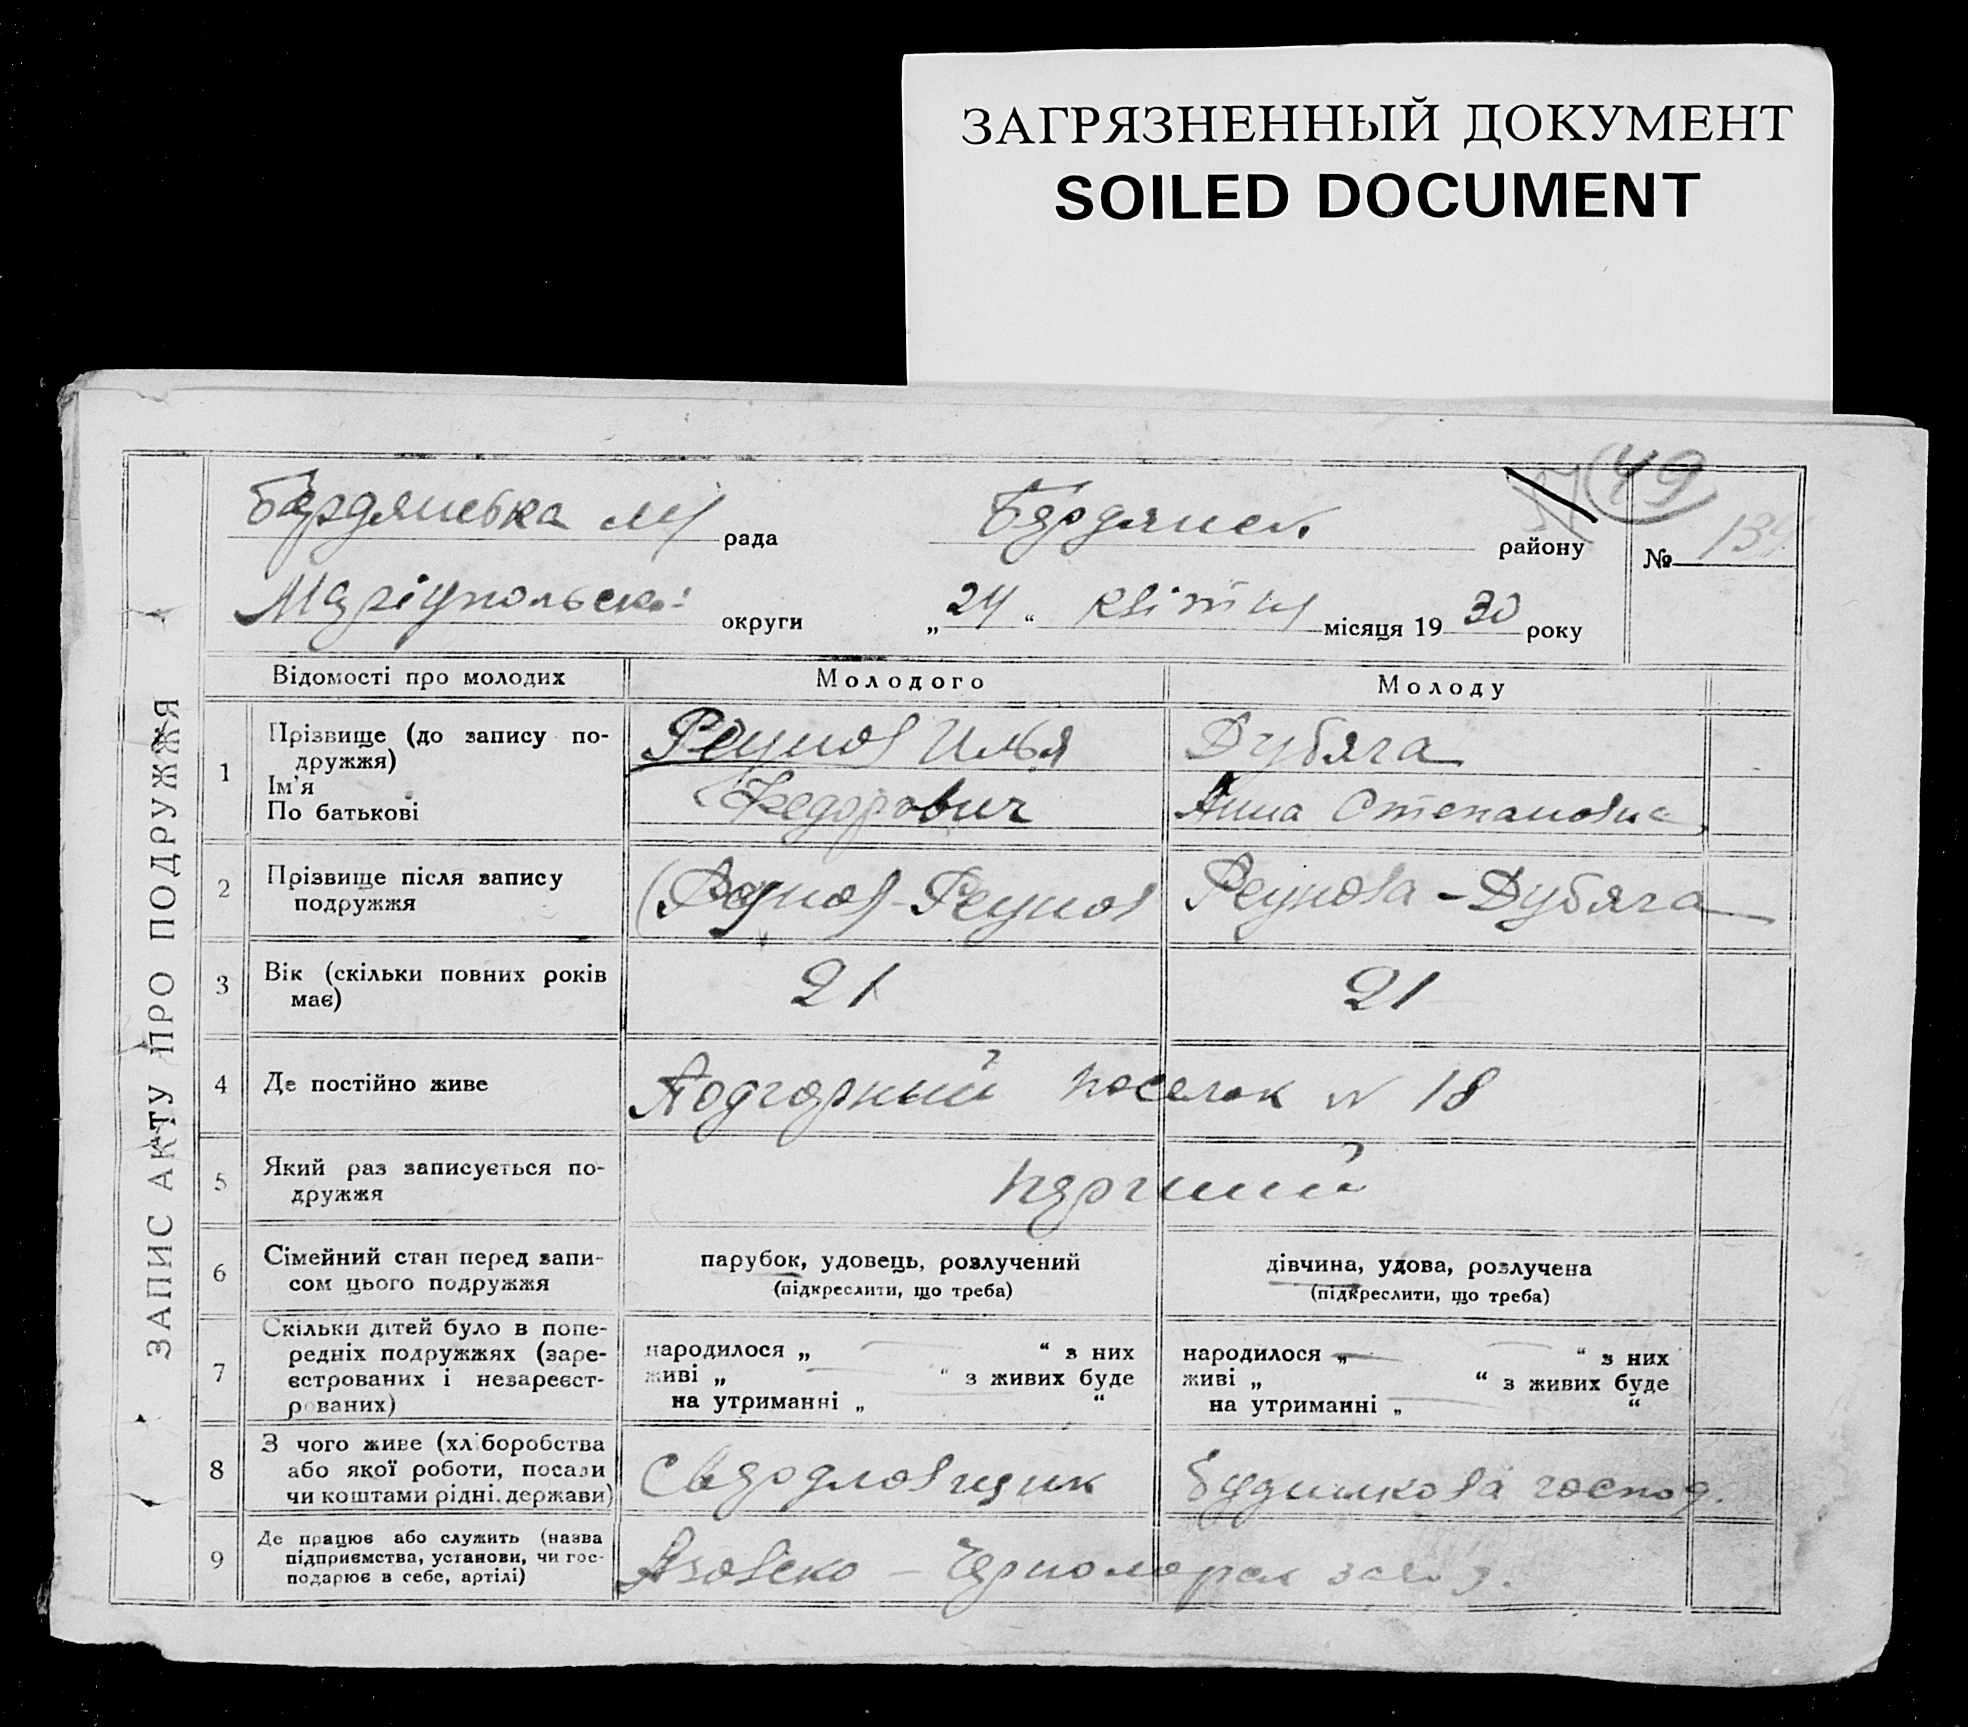 ЗАГРЯЗНЕННЫЙ ДОКУМЕНТ
SOILED DOCUMENT
49
Бердянська м/ рада Бердянськ. району № 134
Маріупольської округи „24“ квітня місяця 1930 року
ЗАПИС АКТУ ПРО ПОДРУЖЖЯ
Відомості про молодих Молодого Молоду
1 Прізвище (до запису по-
дружжя)
Ім'я
По батькові
Реунов Илья
Федорович
Дубяга
Анна Степановна
2 Прізвище після запису
подружжя
Реунов Реунова-Дубяга
3 Вік (скільки повних років
має)
21 21
4 Де постійно живе Подгорный поселок N 18
5 Який раз записується по-
дружжя
перший
6 Сімейний стан перед запи-
сом цього подружжя
парубок, удовець, розлучений
(підкреслити, що треба)
дівчина, удова, розлучена
(підкреслити, що треба)
7 Скільки дітей було в попе-
редніх подружжях (заре-
єстрованих і незареєст-
рованих)
народилося „ — “ з них
живі „ — “ з живих буде
на утриманні „ “
народилося „ — “ з них
живі „ “ з живих буде
на утриманні „ — “
8 З чого живе (хліборобства
або якої роботи, посади
чи коштами рідні, держави)
Сверловщик господ.
9 Де працює або служить (назва
підприємства, установи, чи гос-
подарює в себе, артілі)
Азовско - Черноморск завод.